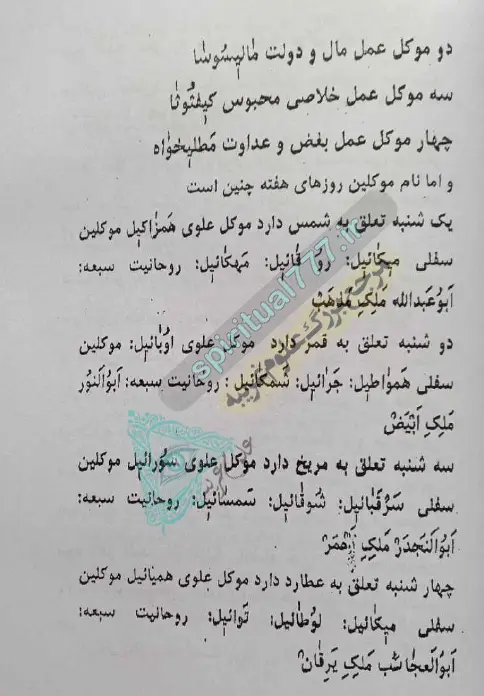 دو موکل عمل مال و دولت مٰالیسُوسٰا
سه موکل عمل خلاصی محبوس کیفثُوثٰا
چهار موکل عمل بغض و عداوت مَطلیخوٰاه
و اما نام موکلین روزهای هفته چنین است
یک شنبه تعلق به شمس دارد موکل علوی هَمزٰاکیل موکلین
سفلی میکٰائیل: روقٰائیل: مَهکٰائیل: روحانیت سبعه:
اَبوُعَبدالله مَلِکِ مُذهَبْ
دو شنبه تعلق به قمر دارد موکل علوی اوُبٰائیل: موکلین
سفلی هَموٰاطیل: جَرٰائیل: شَمکٰائیل: روحانیت سبعه: اَبوُالنوُر
مَلِکِ اَبْیَضْ
سه شنبه تعلق به مریخ دارد موکل علوی سوُرائیل موکلین
سفلی سَرْقَبٰائیل: شوُقٰائیل: سَمسٰائیل: روحانیت سبعه:
اَبوُالنَجدَرْ مَلِکِ اَحمَرْ
چهار شنبه تعلق به عطارد دارد موکل علوی همیائیل موکلین
سفلی میکٰائیل: لوُطٰائیل: تَوائیل: روحانیت سبعه:
اَبوُالعجٰاسُب مَلِکِ یَرقٰانْ
spiritual777.ir
مرجع بزرگ علوم غریبه